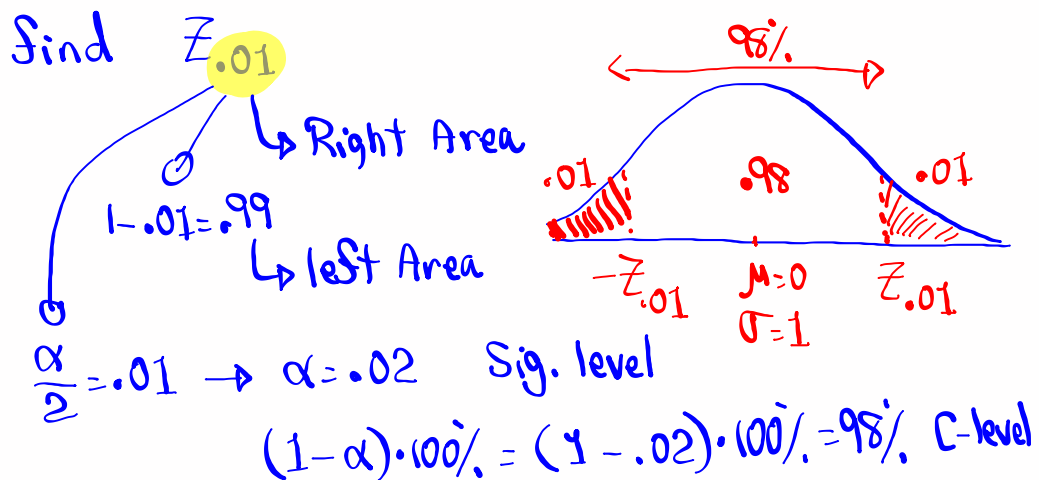 find Z.01
Right Area
1-.01=.99
left Area
α/2=.01 → α=.02 Sig. level
(1-α)·100% = (1-.02)·100% =98% C-level
98%
.01 .98 .01
-Z.01 μ=0 Z.01
σ=1